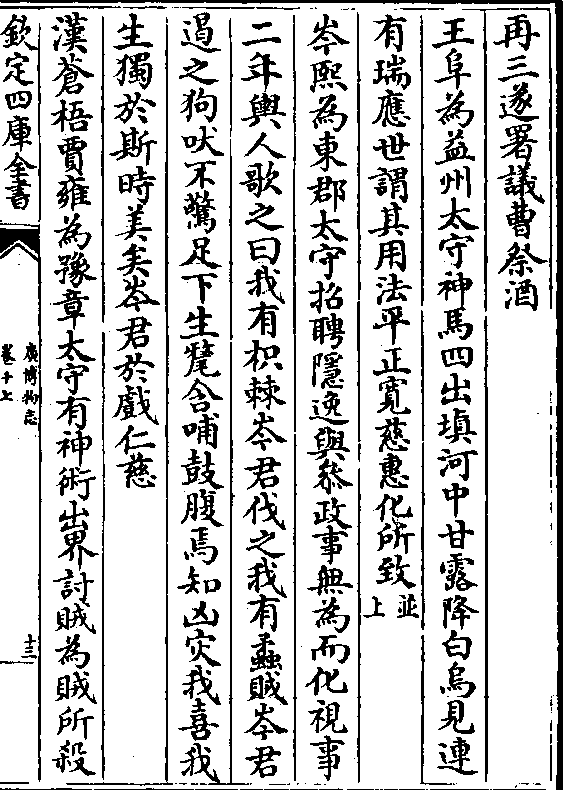 再三遂署議曹祭酒
王阜為益州太守神馬四出填河中甘露降白烏見連
有瑞應世謂其用法平正寛慈惠化所致並上
岑熙為東郡太守招聘隱逸與叅政事無為而化視事
二年輿人歌之曰我有枳棘岑君伐之我有蟊賊岑君
遏之狗吠不驚足下生氂含哺鼓腹焉知凶災我喜我
生獨於斯時美矣岑君於戲仁慈
漢蒼梧賈雍為豫章太守有神術出界討賊為賊所殺
欽定四庫全書
廣博物志
卷十七
十三